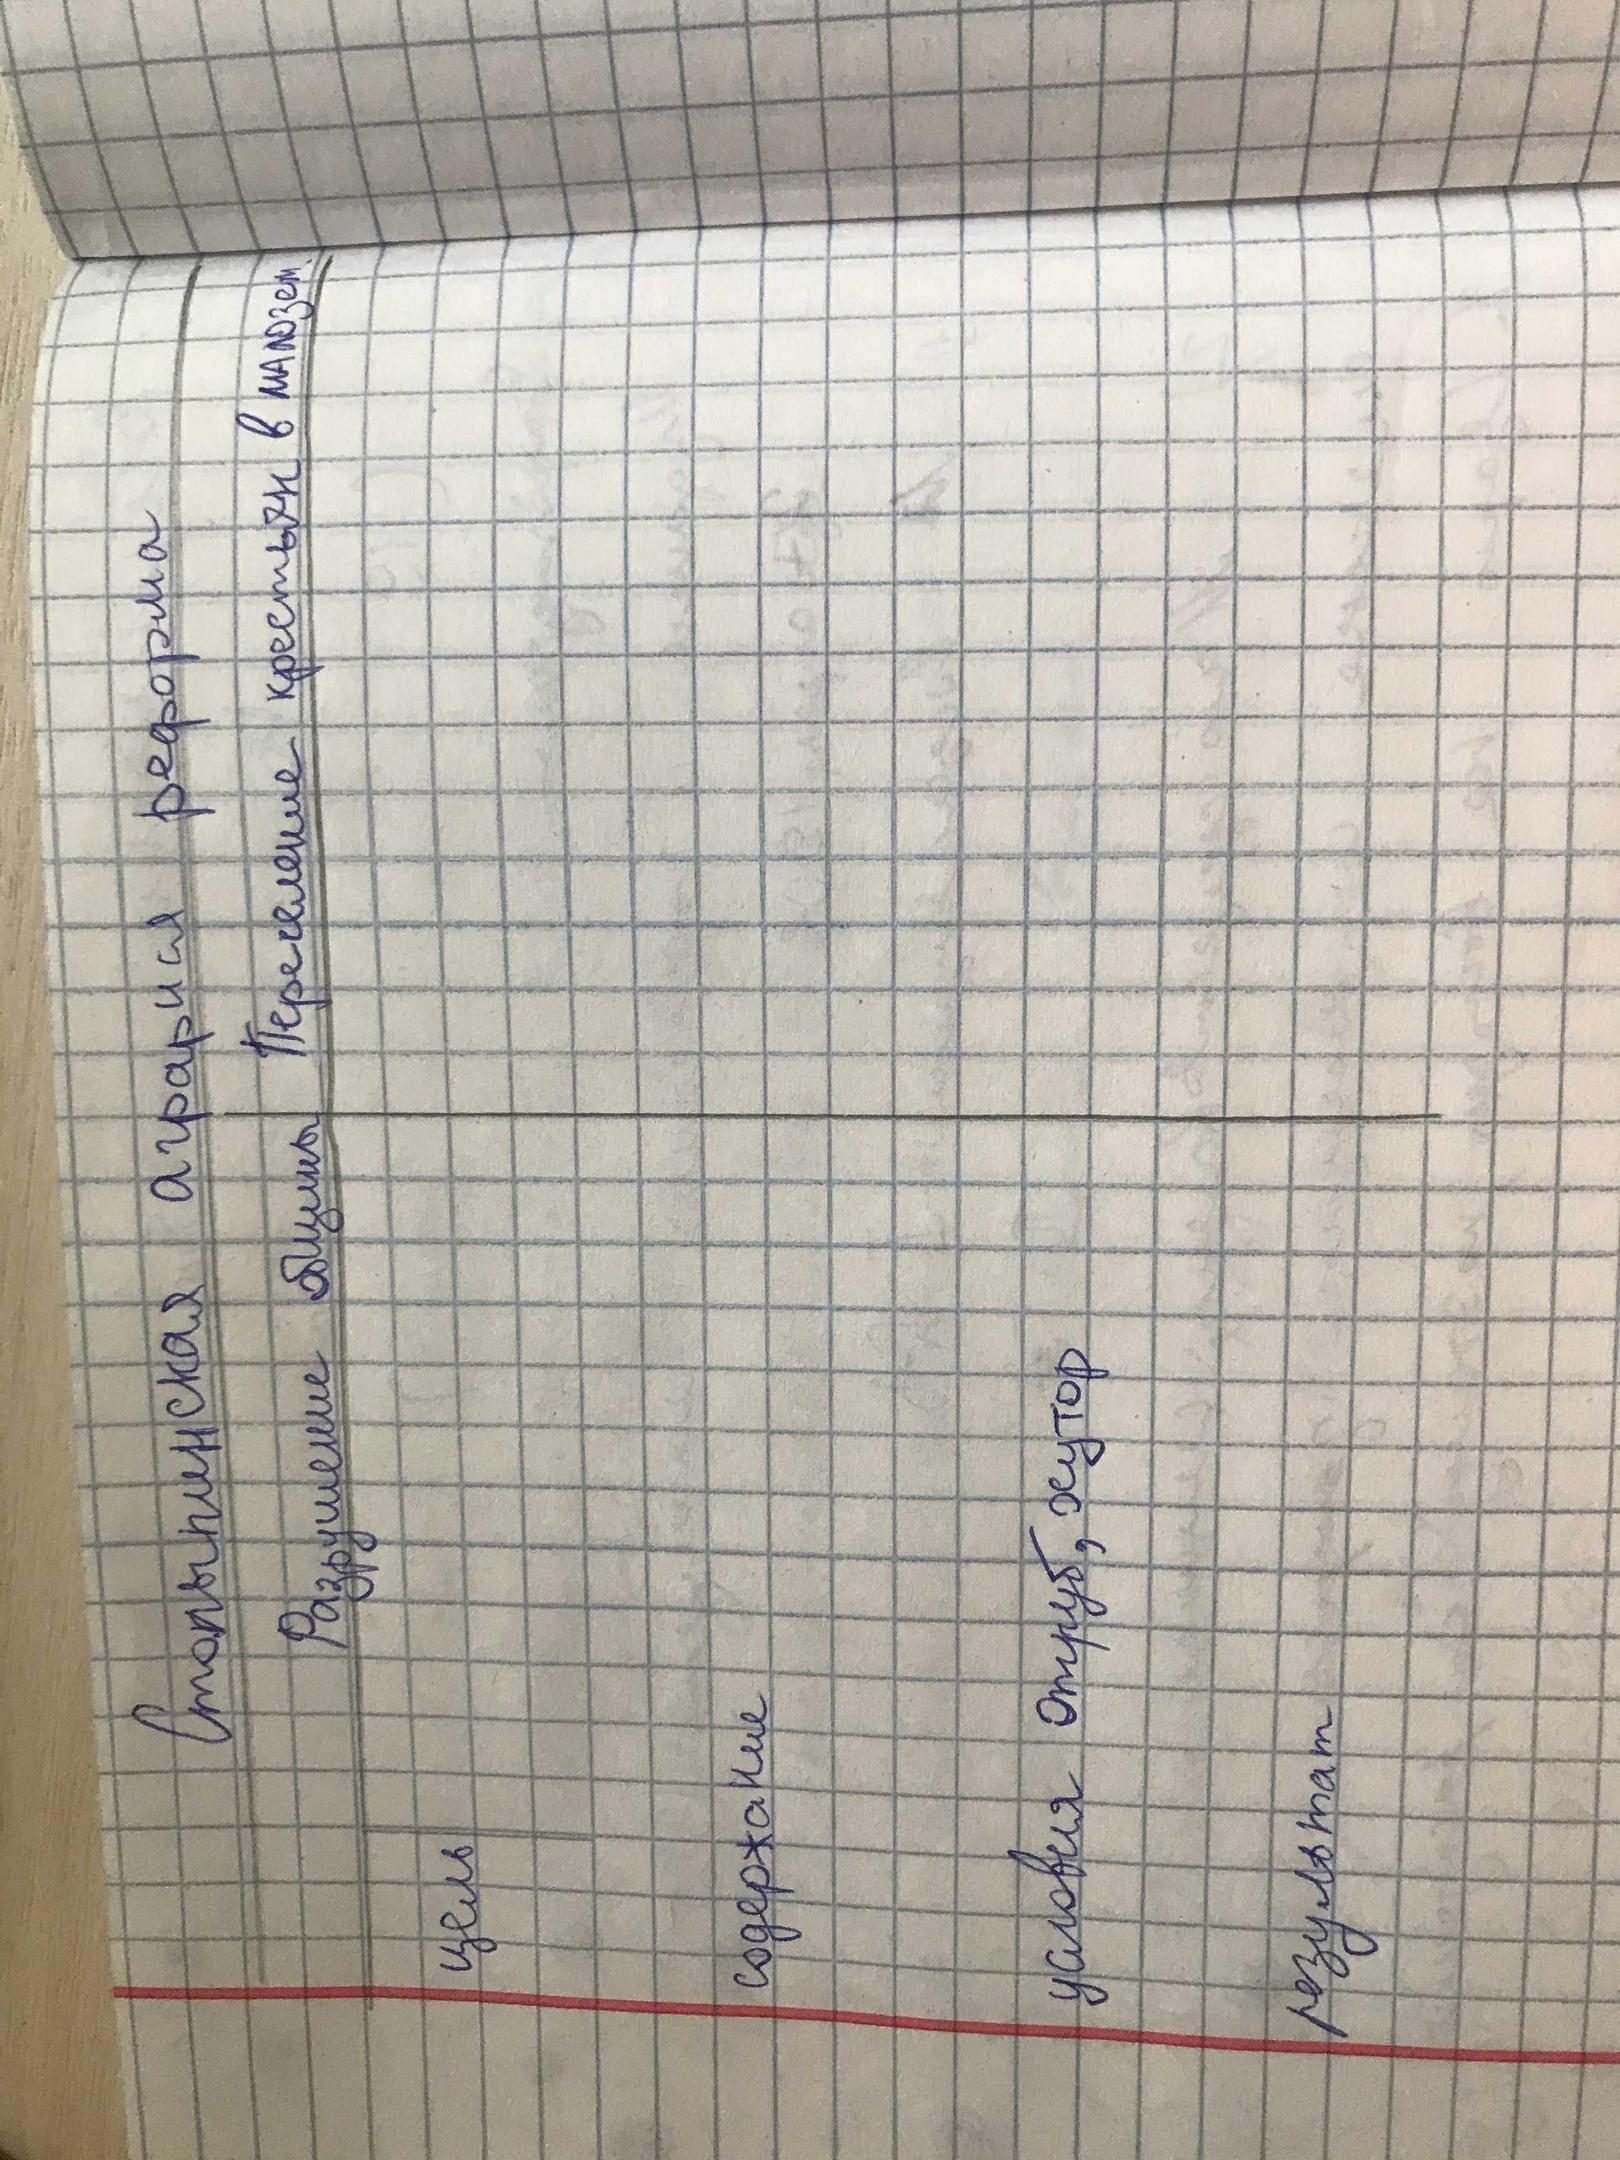 Столыпинская аграрная реформа
Разрушение общины Переселение крестьян в малозем.
цель
содержание
условия Отруб, хутор
результат